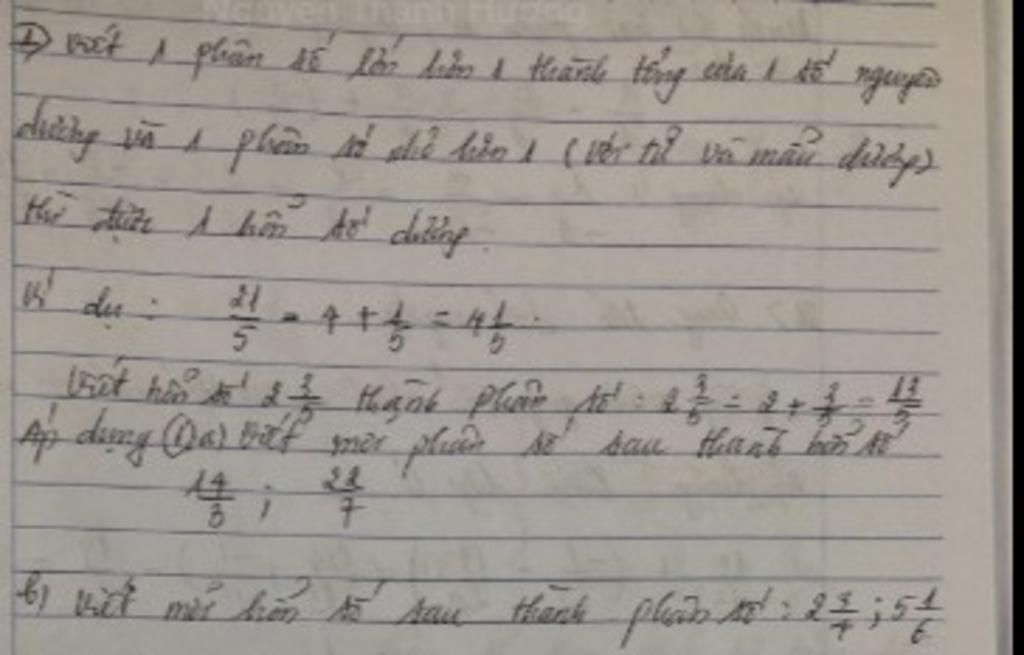 Nguyen Thanh Huong
1) Viết 1 phân số lớn hơn 1 thành tổng của 1 số nguyên
dương và 1 phân số nhỏ hơn 1 (với tử và mẫu dương)
thì được 1 hỗn số dương.
Ví dụ : 21/5 = 4 + 1/5 = 4 1/5.
Viết hỗn số 2 3/5 thành phân số : 2 3/5 = 2 + 3/5 = 13/5
Áp dụng ① a) Viết mỗi phân số sau thành hỗn số
14/3 ; 22/7
b) Viết mỗi hỗn số sau thành phân số : 2 3/4 ; 5 1/6